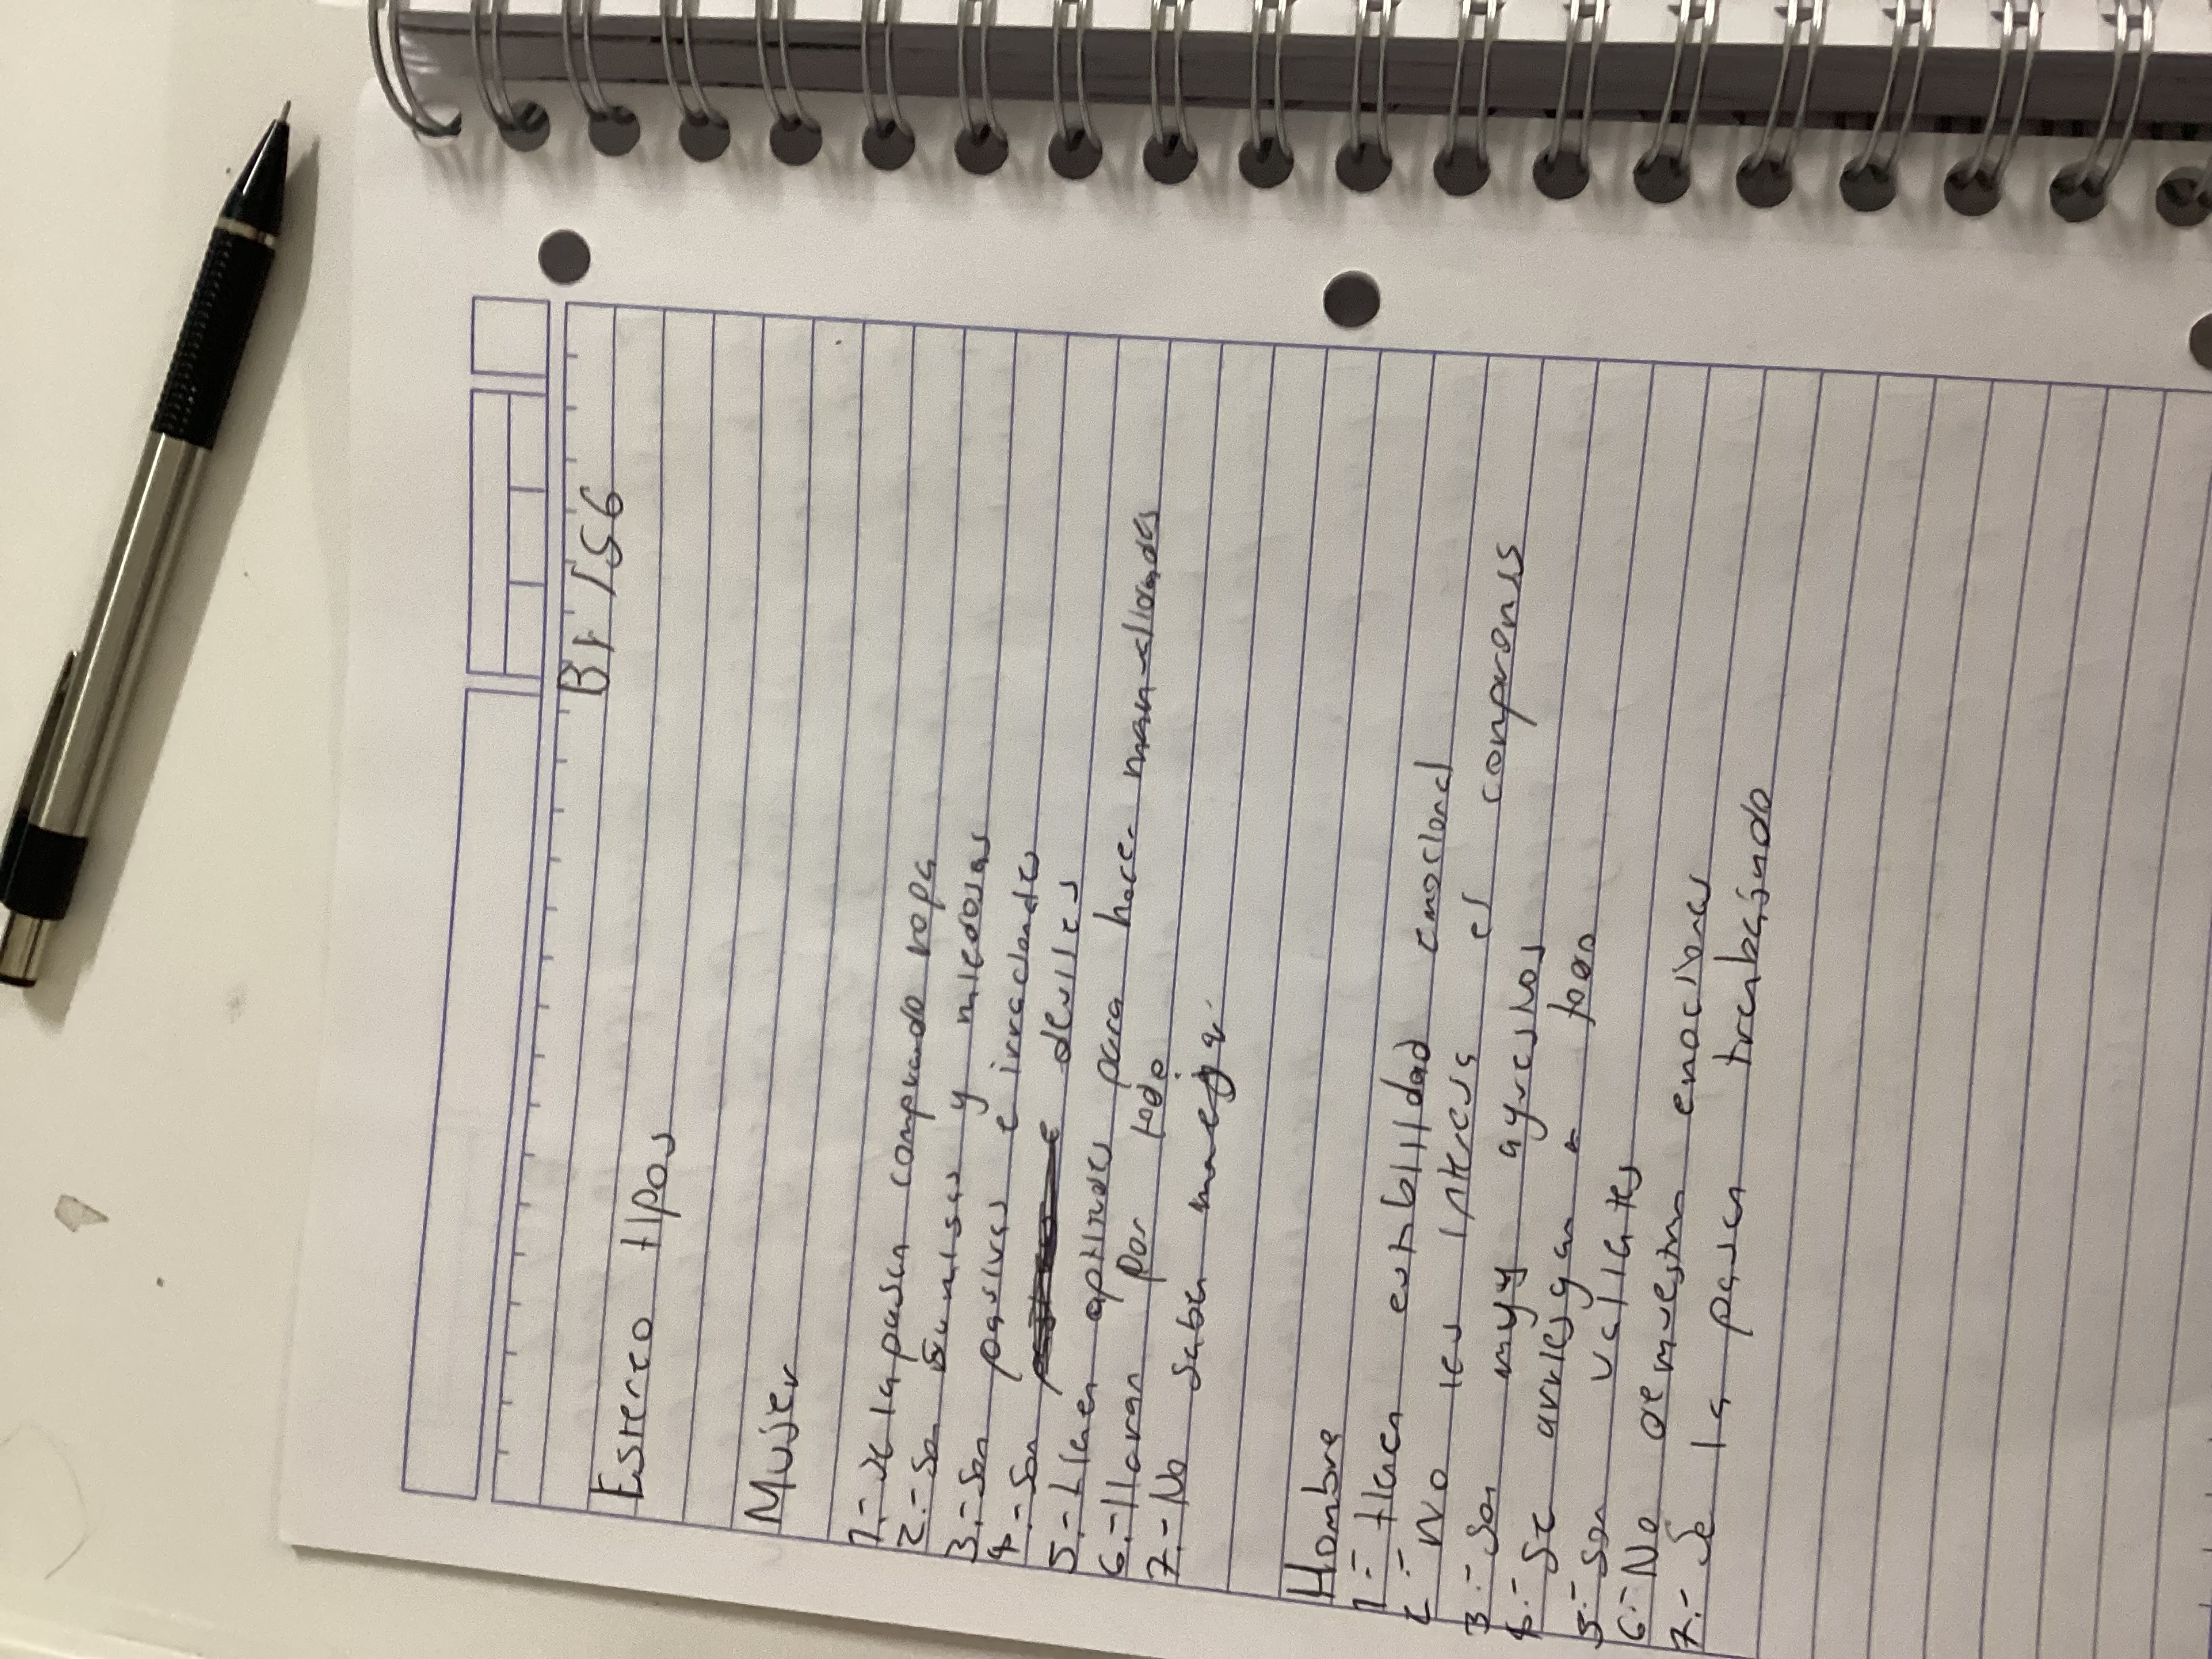 B1 TS6
Estereo tipos
Mujer
1.- se la pasan comprando ropa
2.- Son sumisas y miedosas
3.- Son pasivas e irracionales
4.- Son deviles
5.- tienen aptitudes para hacer manualidades
6.- lloran por todo
7.- No saben manejar
Hombre
1.- tienen estabilidad emocional
2.- No les interesa el compromiso
3.- Son muy agresivos
4.- Se arriesgan a todo
5.- Son valientes
6.- No demuestran emociones
7.- Se la pasan trabajando